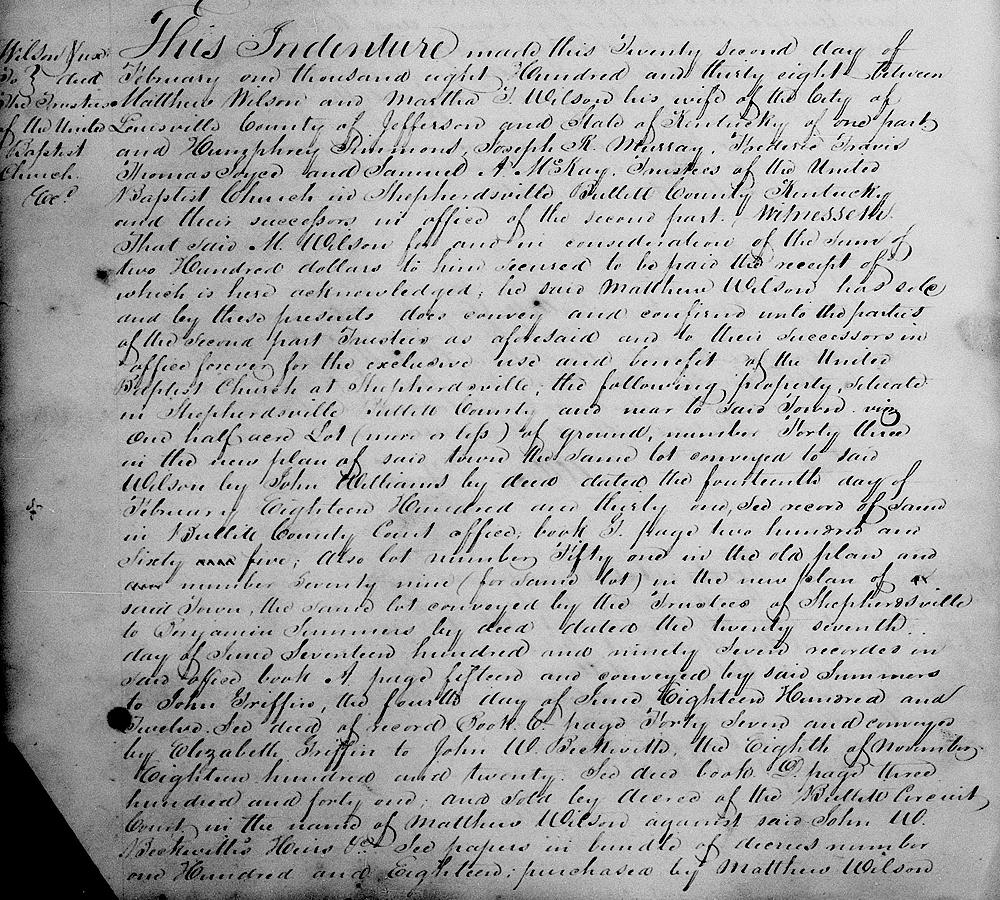 Wilson & ux
To } deed
The Trustees
of the United
Baptist
Church
This Indenture made this Twenty second day of
February one thousand eight Hundred and thirty eight between
Matthew Wilson and Martha T. Wilson his wife of the City of
Louisville County of Jefferson and State of Kentucky of one part
and Humphrey Simmons, Joseph R. Murray, Frederic Travis
Thomas Joyce and Samuel A. McKay, Trustees of the United
Baptist Church in Shepherdsville Bullitt County Kentucky
and their successors in office of the second part. Witnesseth
That said M. Wilson for and in consideration of the sum of
two Hundred dollars to him secured to be paid the receipt of
which is here acknowledged; he said Matthew Wilson has sold
and by these presents does convey and confirm unto the parties
of the second part Trustees as aforesaid and to their successors in
office forever for the exclusive use and benefit of the United
Baptist Church at Shepherdsville; the following property, situate
in Shepherdsville Bullitt County and near to said Town viz
one half acre Lot (more or less) of ground, number Forty three
in the new plan of said town the same lot conveyed to said
Wilson by John Williams by deed dated the fourteenth day of
February Eighteen Hundred and thirty one, see record of same
in Bullitt County Court office, book F. page two hundred and
sixty five; also lot number Fifty one in the old plan and
number seventy nine (for same lot) in the new plan of
said Town, the same lot conveyed by the Trustees of Shepherdsville
to Benjamin Summers by deed dated the twenty seventh
day of June Seventeen hundred and ninety seven recorded in
said office book A page fifteen and conveyed by said Summers
to John Griffin, the fourth day of June Eighteen Hundred and
Twelve. See deed of record Book C. page Forty seven and conveyed
by Elizabeth Griffin to John W. Beckwith, the Eighth of November
Eighteen hundred and twenty. See deed book D. page three
hundred and forty one; and sold by decree of the Bullitt Circuit
Court, in the name of Matthew Wilson against said John W.
Beckwith's Heirs &c. See papers in bundle of decrees number
one Hundred and Eighteen; purchased by Matthew Wilson